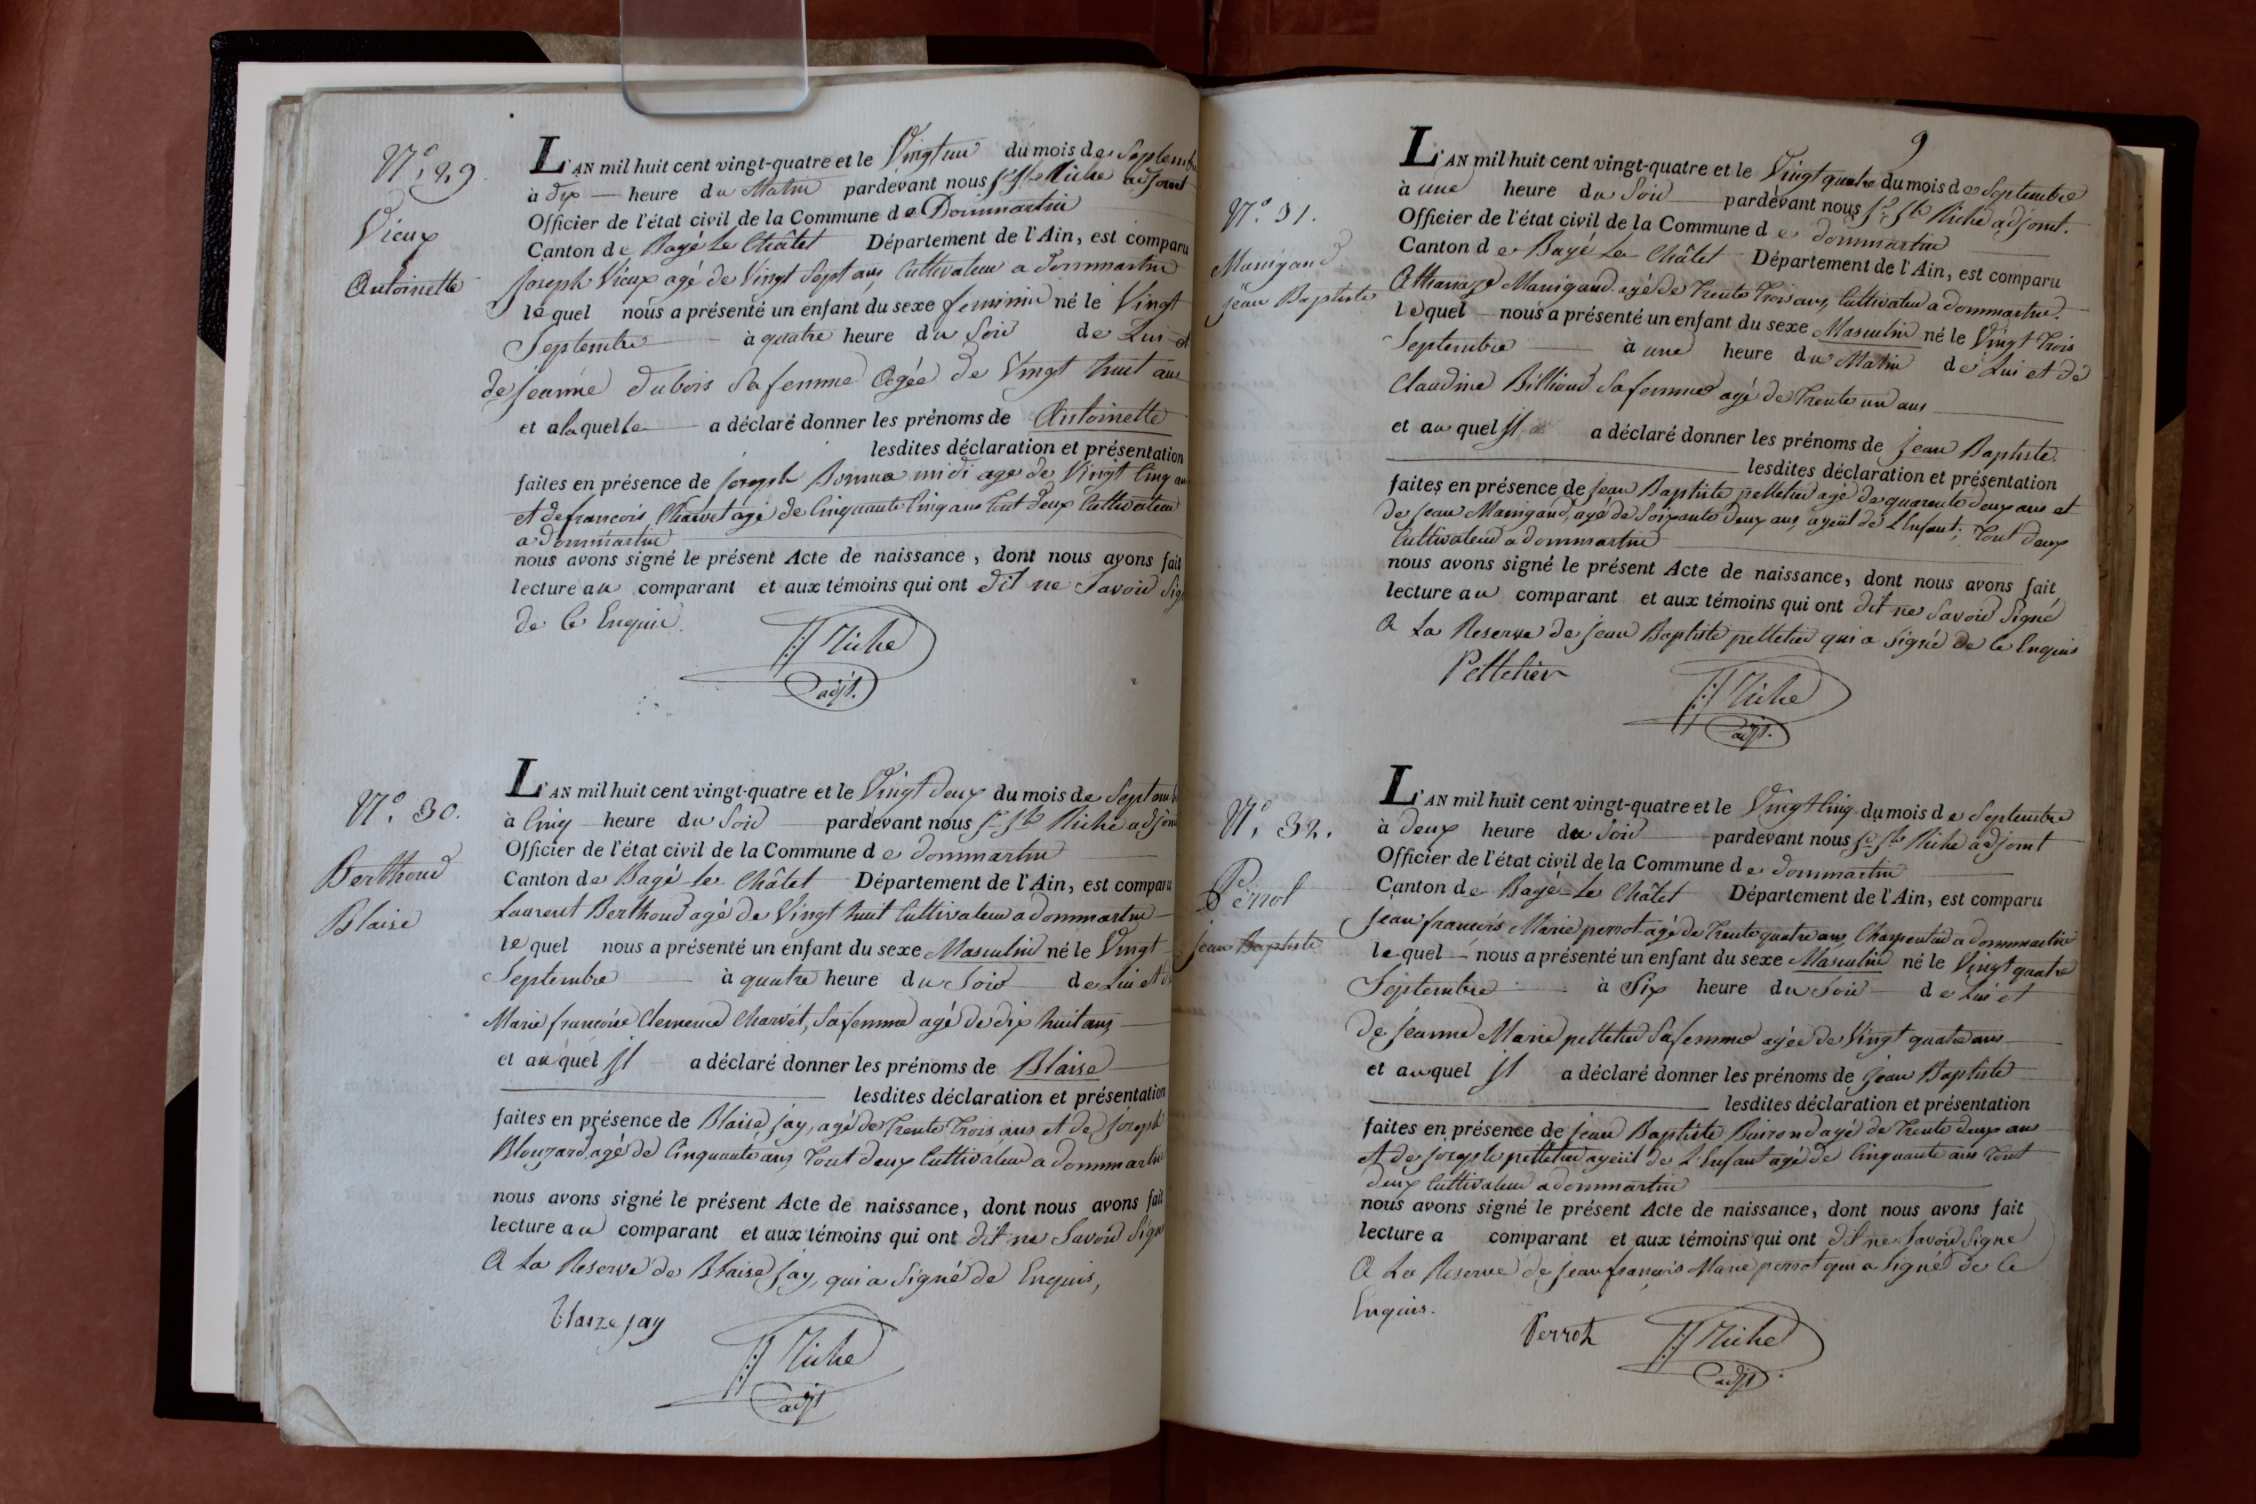 N.º 29.
Vieux
Antoinette
L'AN mil huit cent vingt-quatre et le Vingt un du mois de Septembre
à dix heure du Matin pardevant nous Riche adjoint
Officier de l'état civil de la Commune de Dommartin
Canton de Bagé le Châtel Département de l'Ain, est comparu
Joseph Vieux agé de Vingt Sept ans, Cultivateur a dommartin
lequel nous a présenté un enfant du sexe feminin né le Vingt
Septembre à quatre heure du Soir de Lui et
de jeanne dubois Sa femme Agée de Vingt huit ans
et a laquelle a déclaré donner les prénoms de Antoinette
lesdites déclaration et présentation
faites en présence de joseph Bonne midi age de Vingt Cinq ans
et de francois Charvet agé de Cinquante Cinq ans tout deux Cultivateur
a dommartin
nous avons signé le présent Acte de naissance, dont nous avons fait
lecture au comparant et aux témoins qui ont dit ne Savoir Sig
de Ce Enquis.
Riche
adjt.
N.º 30.
Berthoud
Blaise
L'AN mil huit cent vingt-quatre et le Vingt deux du mois de Septemb
à Cinq heure du Soir pardevant nous Riche adjoin
Officier de l'état civil de la Commune de dommartin
Canton de Bagé le Châtel Département de l'Ain, est comparu
Laurent Berthoud agé de Vingt huit Cultivateur a dommartin
lequel nous a présenté un enfant du sexe Masculin né le Vingt
Septembre à quatre heure du Soir de Lui et de
Marie francoise Clemence Charvét, Sa femme agé de dix huit ans
et auquel jl a déclaré donner les prénoms de Blaise
lesdites déclaration et présentation
faites en présence de Blaise jay, agé de trente trois ans et de joseph
Blouzard, agé de Cinquante ans, tout deux Cultivateur a dommartin
nous avons signé le présent Acte de naissance, dont nous avons fait
lecture au comparant et aux témoins qui ont dit ne Savoir Signé
A La Reserve de Blaise jay, qui a Signé de Enquis,
Blaize jay
Riche
adjt
9
N.º 31.
Manigand
jean Baptiste
L'AN mil huit cent vingt-quatre et le Vingt quatre du mois de Septembre
à une heure du Soir pardevant nous Riche adjoint.
Officier de l'état civil de la Commune de dommartin
Canton de Bagé Le Châtel Département de l'Ain, est comparu
Manigand agé de trente trois ans, Cultivateur a dommartin.
lequel nous a présenté un enfant du sexe Masculin né le Vingt trois
Septembre à une heure du Matin de Lui et de
Claudine Billioud Sa femme agé de trente un ans
et auquel jl a déclaré donner les prénoms de jean Baptiste.
lesdites déclaration et présentation
faites en présence de jean Baptiste pelletier agé de quarante deux ans et
de jean Manigand, agé de Soixante deux ans, ayeül de L'Enfant; tout deux
Cultivateur a dommartin
nous avons signé le présent Acte de naissance, dont nous avons fait
lecture au comparant et aux témoins qui ont dit ne Savoir Signé
A La Reserve de jean Baptiste pelletier qui a Signé de Ce Enquis
Pelletier
Riche
adjt.
N.º 32.
Perrot
jean Baptiste
L'AN mil huit cent vingt-quatre et le Vingt Cinq du mois de Septembre
à deux heure du Soir pardevant nous Riche adjoint
Officier de l'état civil de la Commune de dommartin
Canton de Bagé Le Châtel Département de l'Ain, est comparu
jean francois Marie perrot agé de trente quatre ans, Charpentier a dommartin
lequel nous a présenté un enfant du sexe Masculin né le Vingt quatre
Septembre à Six heure du Soir de Lui et
de jeanne Marie pelletier Sa femme agée de Vingt quatre ans
et auquel jl a déclaré donner les prénoms de jean Baptiste
lesdites déclaration et présentation
faites en présence de jean Baptiste Buirond agé de trente deux ans
et de joseph pelletier ayeül de L'Enfant agé de Cinquante ans tout
deux Cultivateur a dommartin
nous avons signé le présent Acte de naissance, dont nous avons fait
lecture a comparant et aux témoins qui ont dit ne Savoir Signe
A La Reserve de jean françois Marie perrot qui a Signé de Ce
Enquis.
Perrot
Riche
adjt.